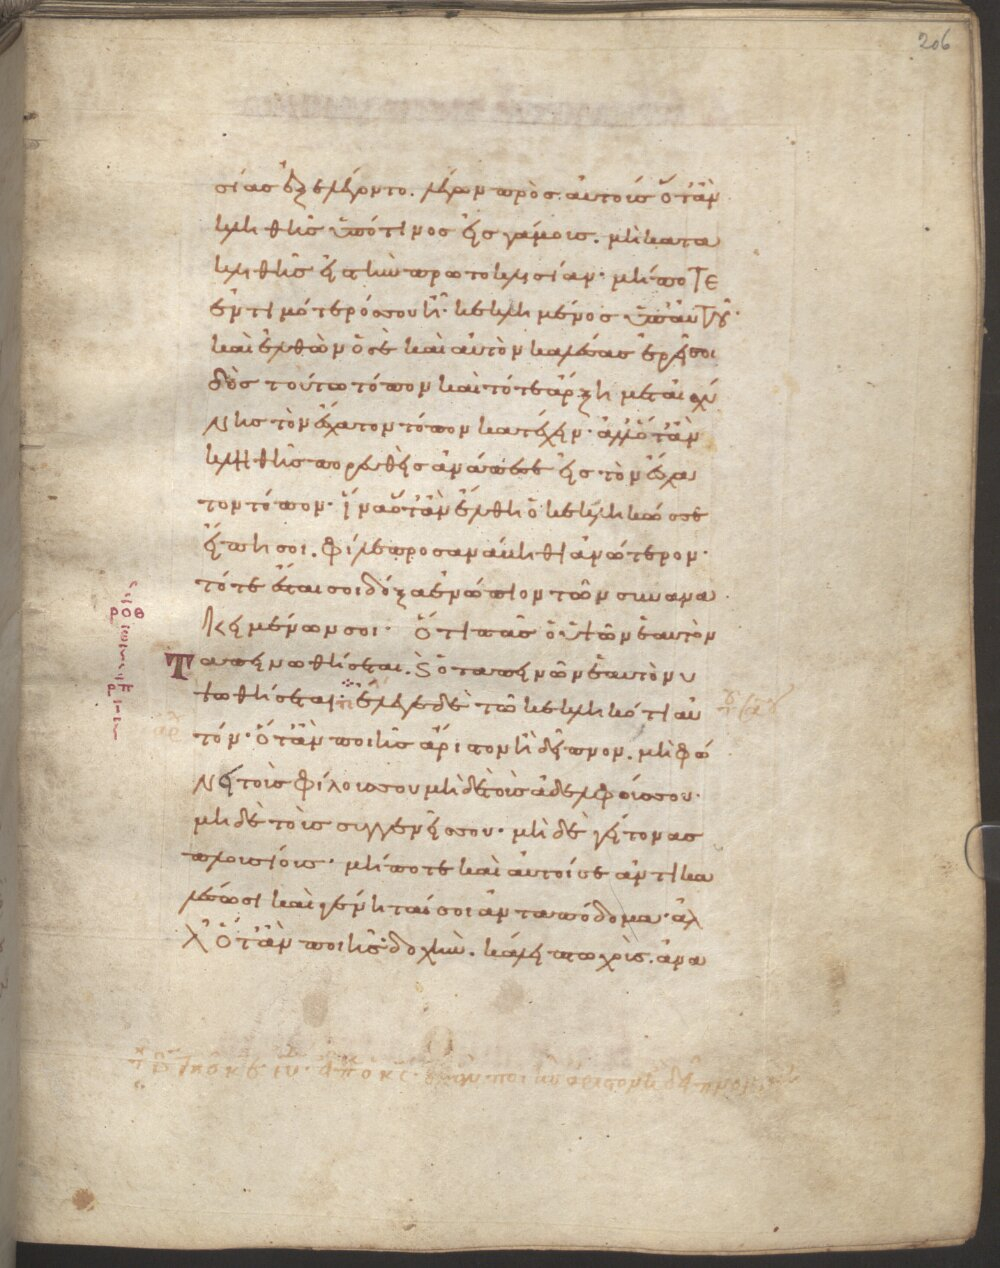 206
σίας ἐξελέγοντο. λέγων πρὸς αὐτοὺς ὅτὰν
κληθῆς ὑπό τινος εἰς γάμους. μὴ κατα
κληθῆς εἰς τὴν πρωτοκλησίαν. μήποτε
ἐντιμότερός σου ἦ κεκλημένος ὑπ αὐτοῦ.
καὶ ἐλθὼν ὁ σὲ καὶ αὐτὸν καλέσας ἐρεῖ σοι
δὸς τούτω τόπον καὶ τότε ἄρξη μετ αἰσχύ
νης τὸν ἔσχατον τόπον κατέχειν. ἀλλ ὅτὰν
κληθῆς πορευθεὶς ἀνάπεσε εἰς τὸν ἔσχα
τον τόπον. ἵνα ὅτὰν ἔλθη ὁ κεκληκώς σε
εἴπη σοι. φίλε προσανάβηθι ἀνώτερον.
τότε ἔσται σοι δόξα ἐνώπιον τῶν συνανα
κειμένων σοι. Ὅτι πᾶς ὁ ὑψῶν ἑαυτὸν
Ταπεινωθήσεται. καὶ ὁ ταπεινῶν ἑαυτὸν ὑ
ψωθήσεται. ἔλεγε δὲ τῶ κεκληκότι αὐ
τόν. Ὅτὰν ποιῆς ἄριστον ἢ δεῖπνον. μὴ φώ
νει τοὺς φίλους σου μὴ δὲ τοὺς ἀδελφούς σου.
μὴ δὲ τοὺς συγγενεῖς σου. μὴ δὲ γείτονας
πλουσίους. μήποτε καὶ αὐτοί σε ἀντικα
λέσωσι καὶ γένηταί σοι ἀνταπόδομα. ἀλ
λ Ὅτὰν ποιῆς δοχὴν. κάλει πτωχοὺς. ἀνα